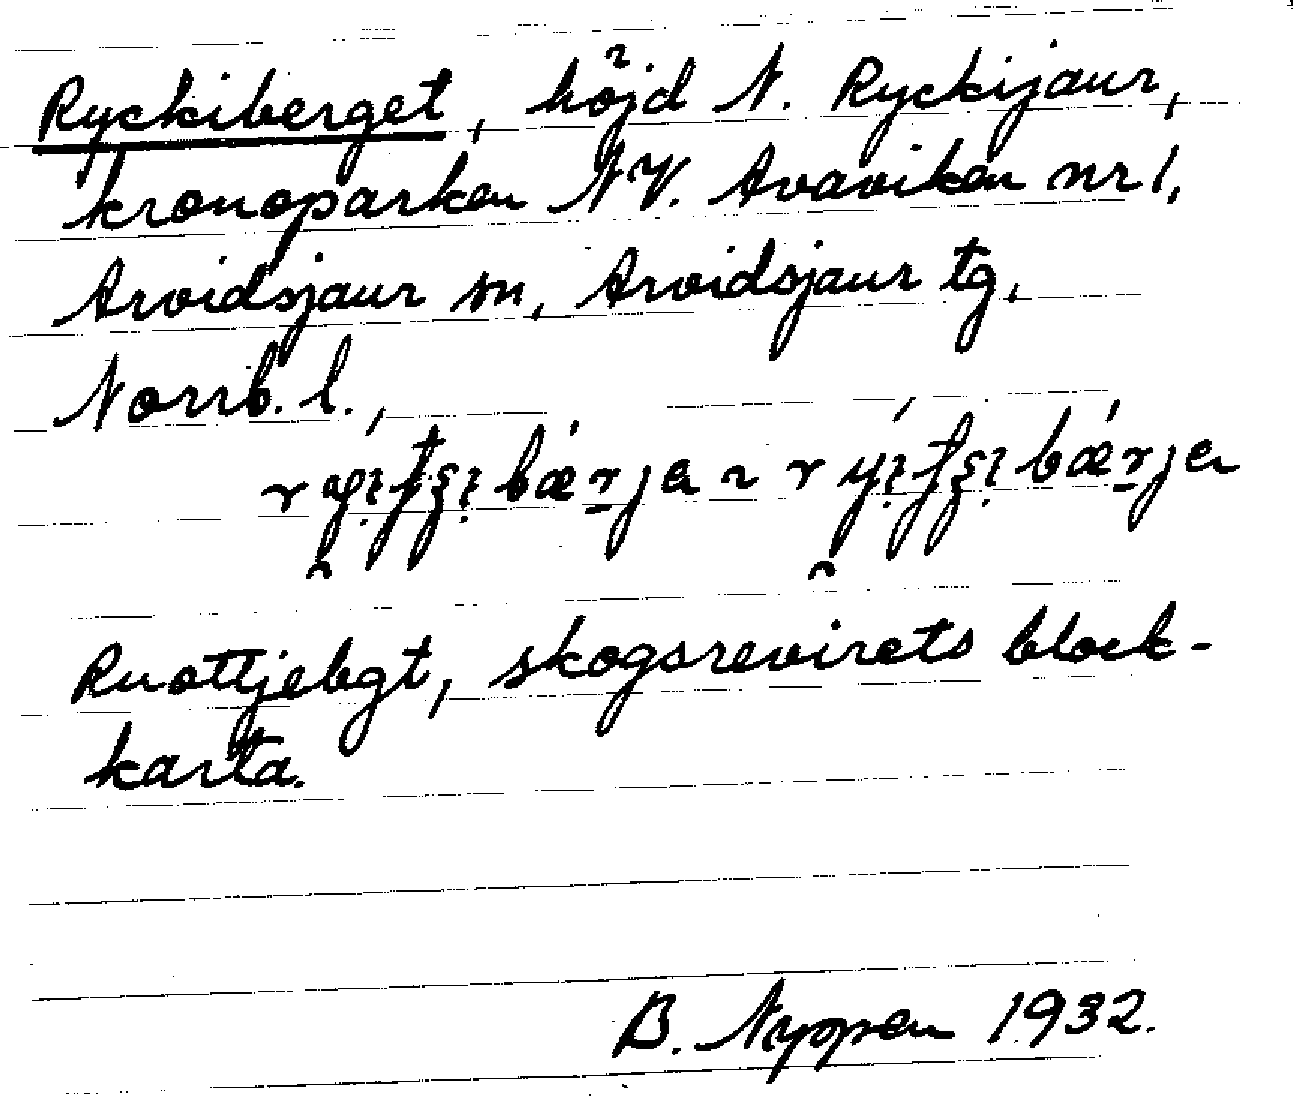 Ryckiberget, höjd N. Ryckijaur,
kronoparken NV. Avaviken nr 1,
Arvidsjaur sn, Arvidsjaur tg,
Norrb. l.,
Ruottjebgt, skogsrevirets block-
karta.
B. Nyppen 1932.